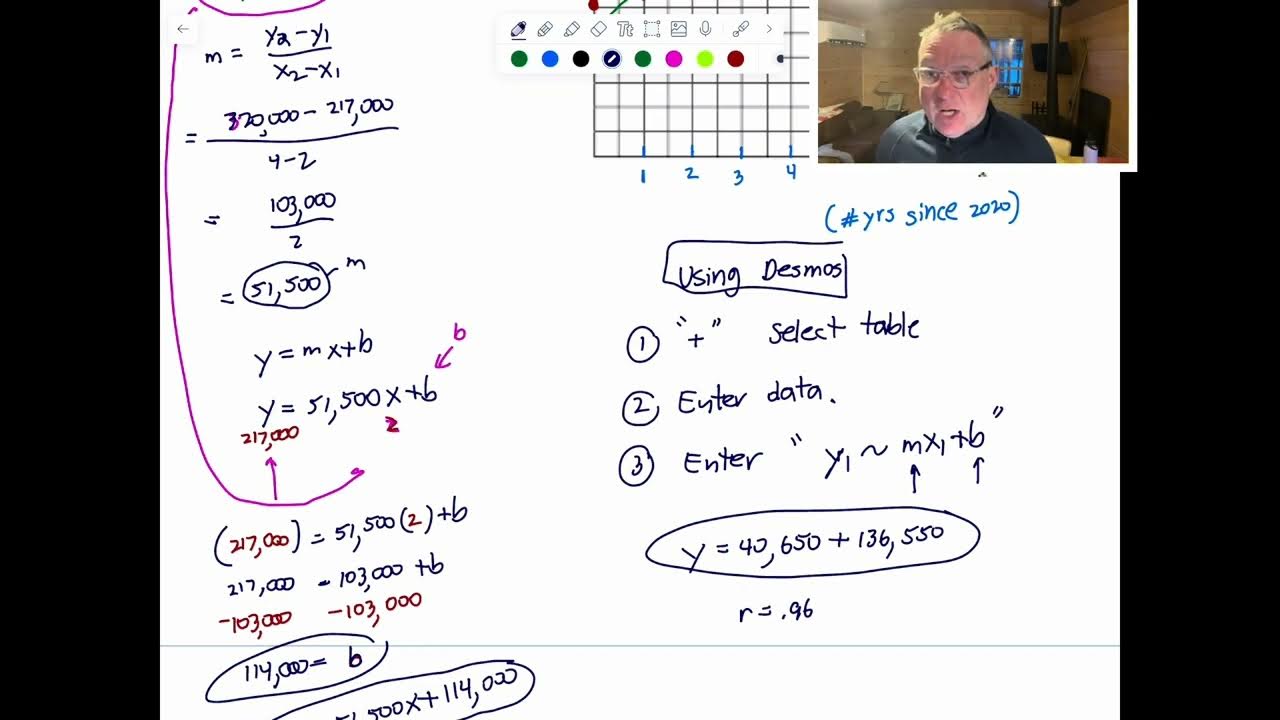 Tt
m = y₂ - y₁ / x₂ - x₁
= 320,000 - 217,000 / 4 - 2
= 103,000 / 2
= 51,500 m
y = mx + b
b
y = 51,500x + b
217,000 2
(217,000) = 51,500(2) + b
217,000 = 103,000 + b
-103,000 -103,000
114,000 = b
51,500x + 114,000
1 2 3 4
(# yrs since 2020)
Using Desmos
① "+" Select table
② Enter data.
③ Enter " y₁ ~ mx₁ + b "
y = 40,650 + 136,550
r = .96